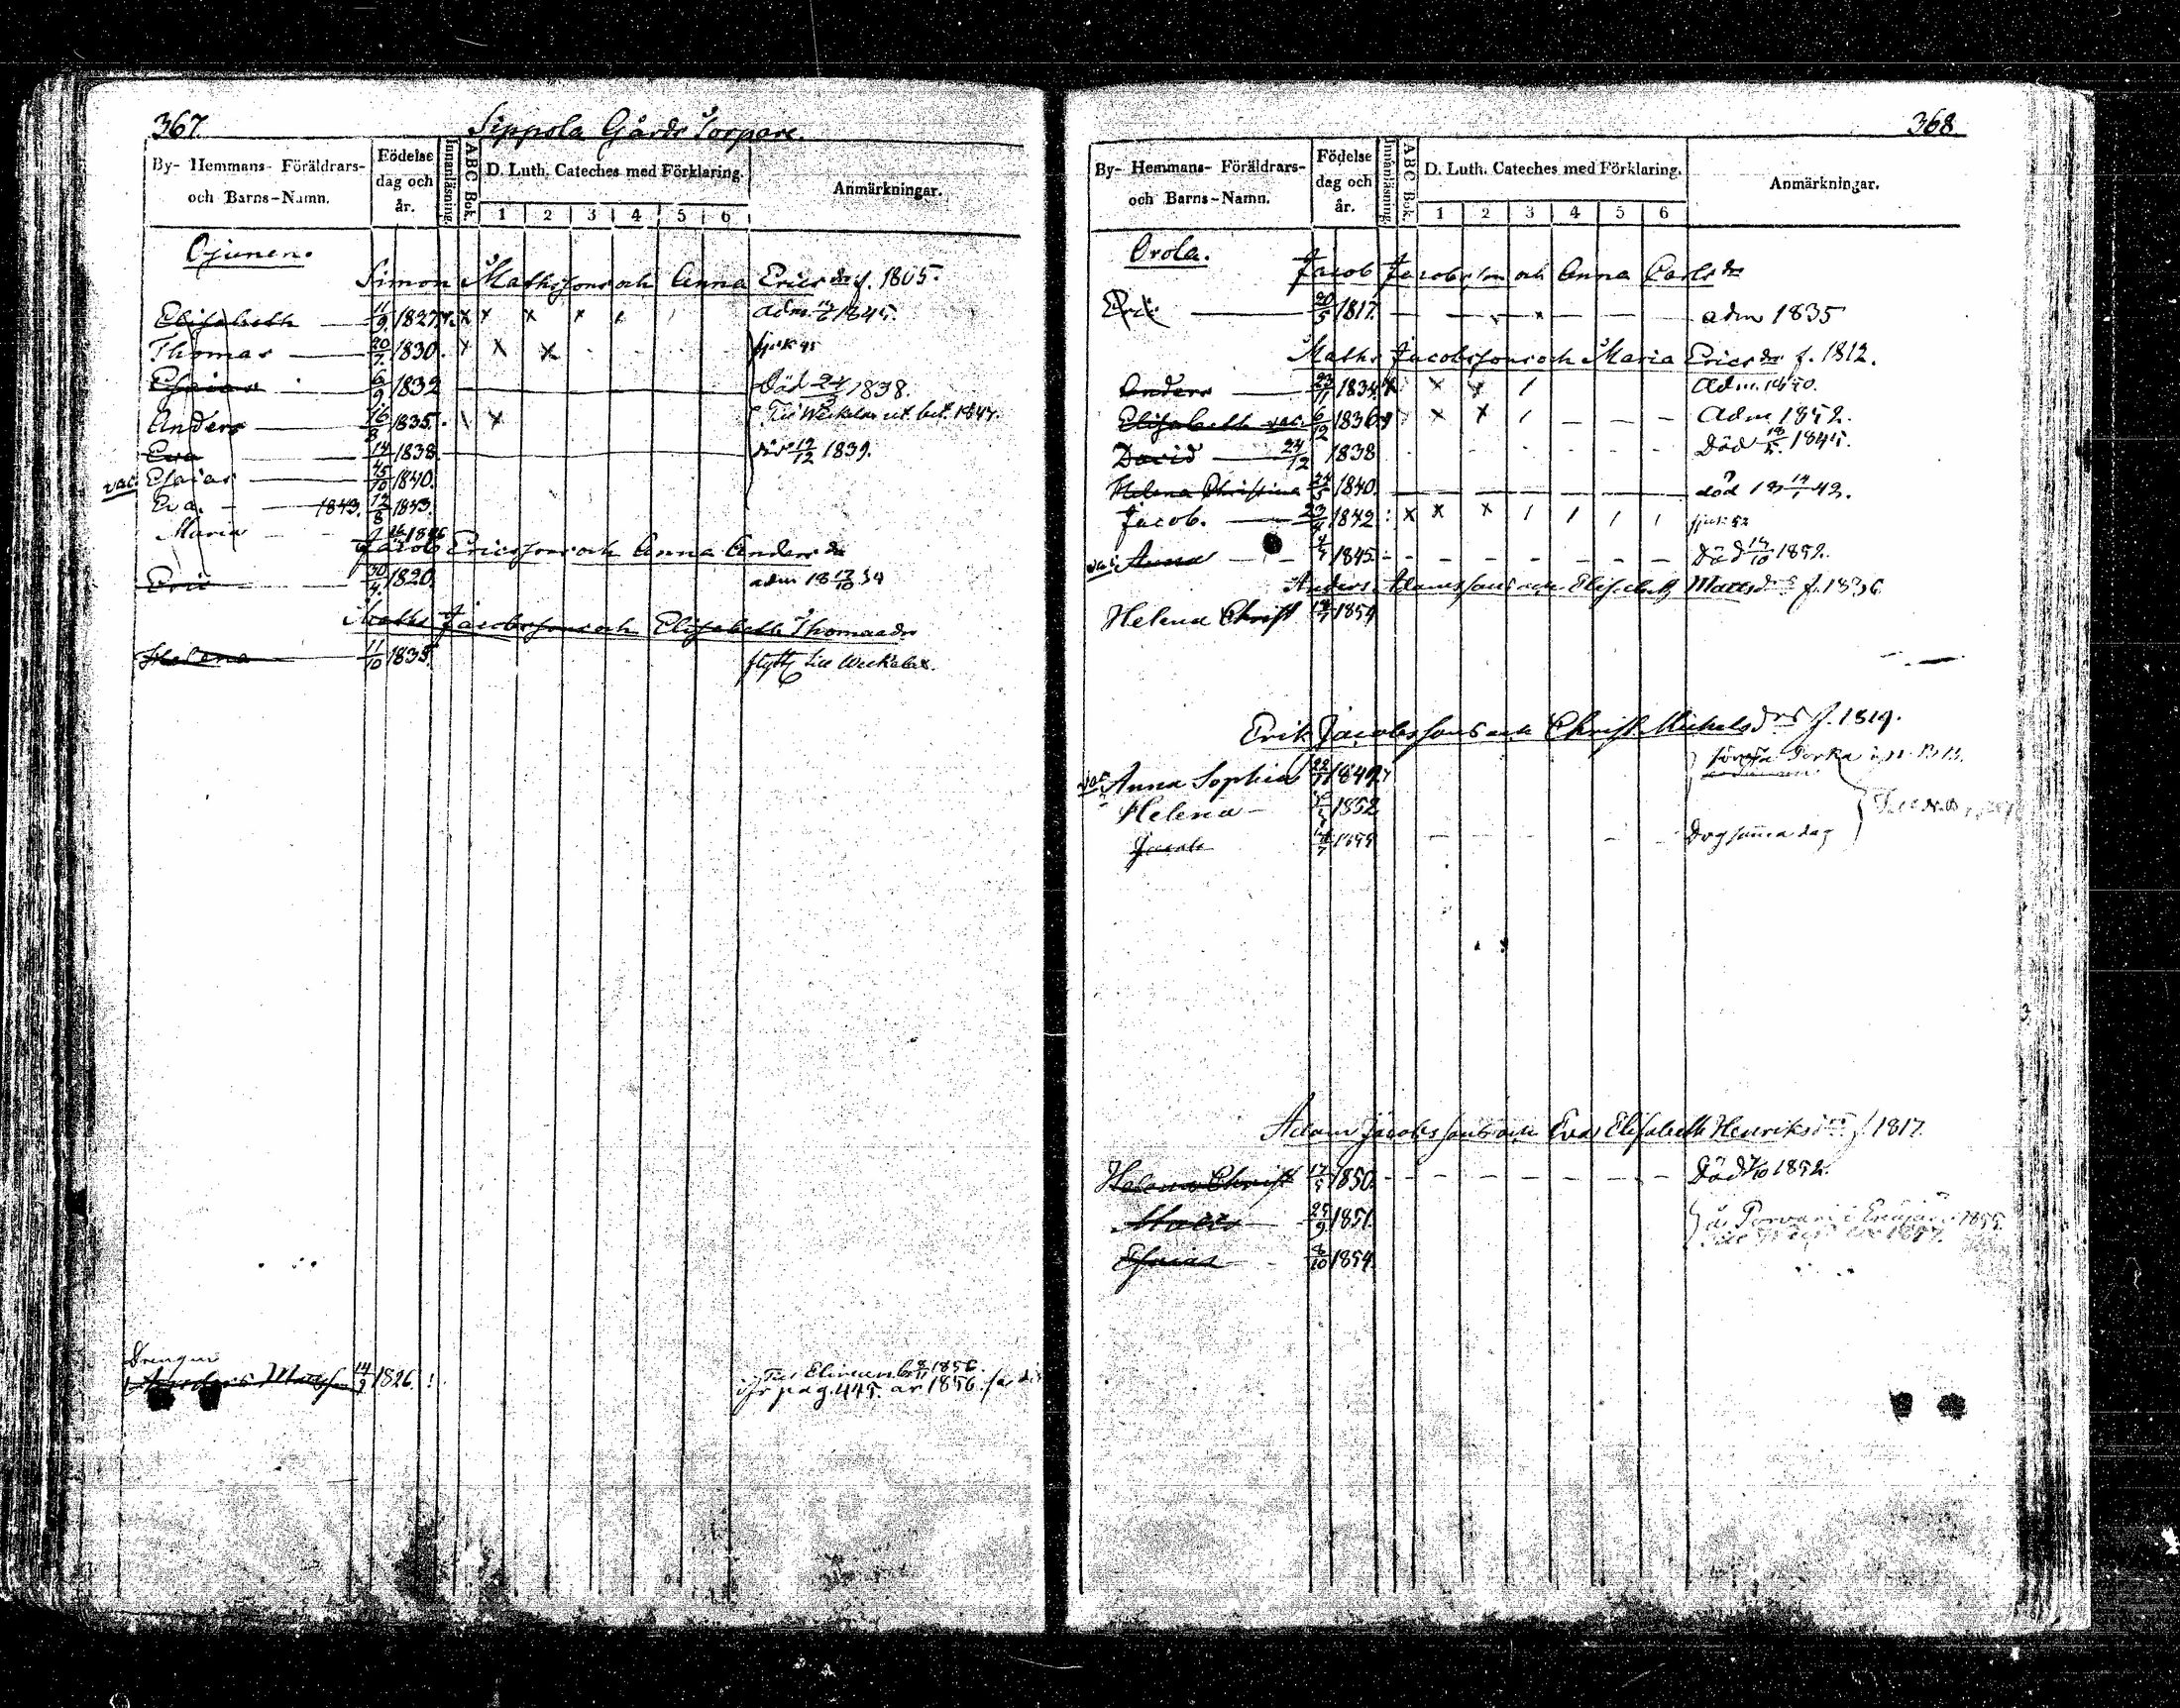 367.
Sippola Gårds Torpare.
By- Hemmans- Föräldrars-
och Barns-Namn.
Födelse
dag och
år.
Innanläsning.
A B C Bok.
D. Luth. Cateches med Förklaring.
1 2 3 4 5 6
Anmärkningar.
Ojunen.
Simon Mathssons och Anna Ericsdr f. 1805.
Elisabeth 11/9 1827. x x x x adm. 1845.
Thomas 20/7 1830. x x x
Esaias 6/9 1832 Död 24/3 1838.
Anders 16/8 1835. x 1847.
Eva 14/ 1838 död 12/12 1839.
vac. Esaias /10 1840.
Eva. 1843. 12/8 1843.
Maria 1846
Jacob Ericssons och Anna Andersdr
Eric 30/4 1820 adm 18 /10 34
Maths Jacobssons och Elisabeth Thomasdr
Helena 11/10 1835 flytt till Weckelax.
Drengen
Anders Matss. 14/3 1826.
pag. 445. år 1856.
368
By- Hemmans- Föräldrars-
och Barns-Namn.
Födelse
dag och
år.
Innanläsning.
A B C Bok.
D. Luth. Cateches med Förklaring.
1 2 3 4 5 6
Anmärkningar.
Orola.
Jacob Jacobsson och Anna Carlsdr
Eric 20/5 1817. adm 1835
Maths Jacobssons och Maria Ericsdr f. 1812.
Anders 22/11 1834. x x x Adm. 1850.
Elisabeth vac. 6/12 1836 x x Adm 1852.
David 24/12 1838 Död 18/5 1845.
Helena Christina 24/5 1840. död 18 14/1 42.
Jacob. 23/ 1842 x x x
vac. Anna 1845. Död /10 1852.
Anders Adamssons och Elisabeth Matsdrs f. 1836
Helena Christ 1859
Erik Jacobssons och Christ Michelsdrs f. 1819.
vac. Anna Sophia 22/11 1849
Helena 1852
Jacob Dog samma dag
Adam Jacobssons och Eva Elisabeth Henriksdrs f 1817.
Helena Christ 17/5 1850. Död /10 1852.
Matts 25/9 1851.
Esaias 8/10 1854.